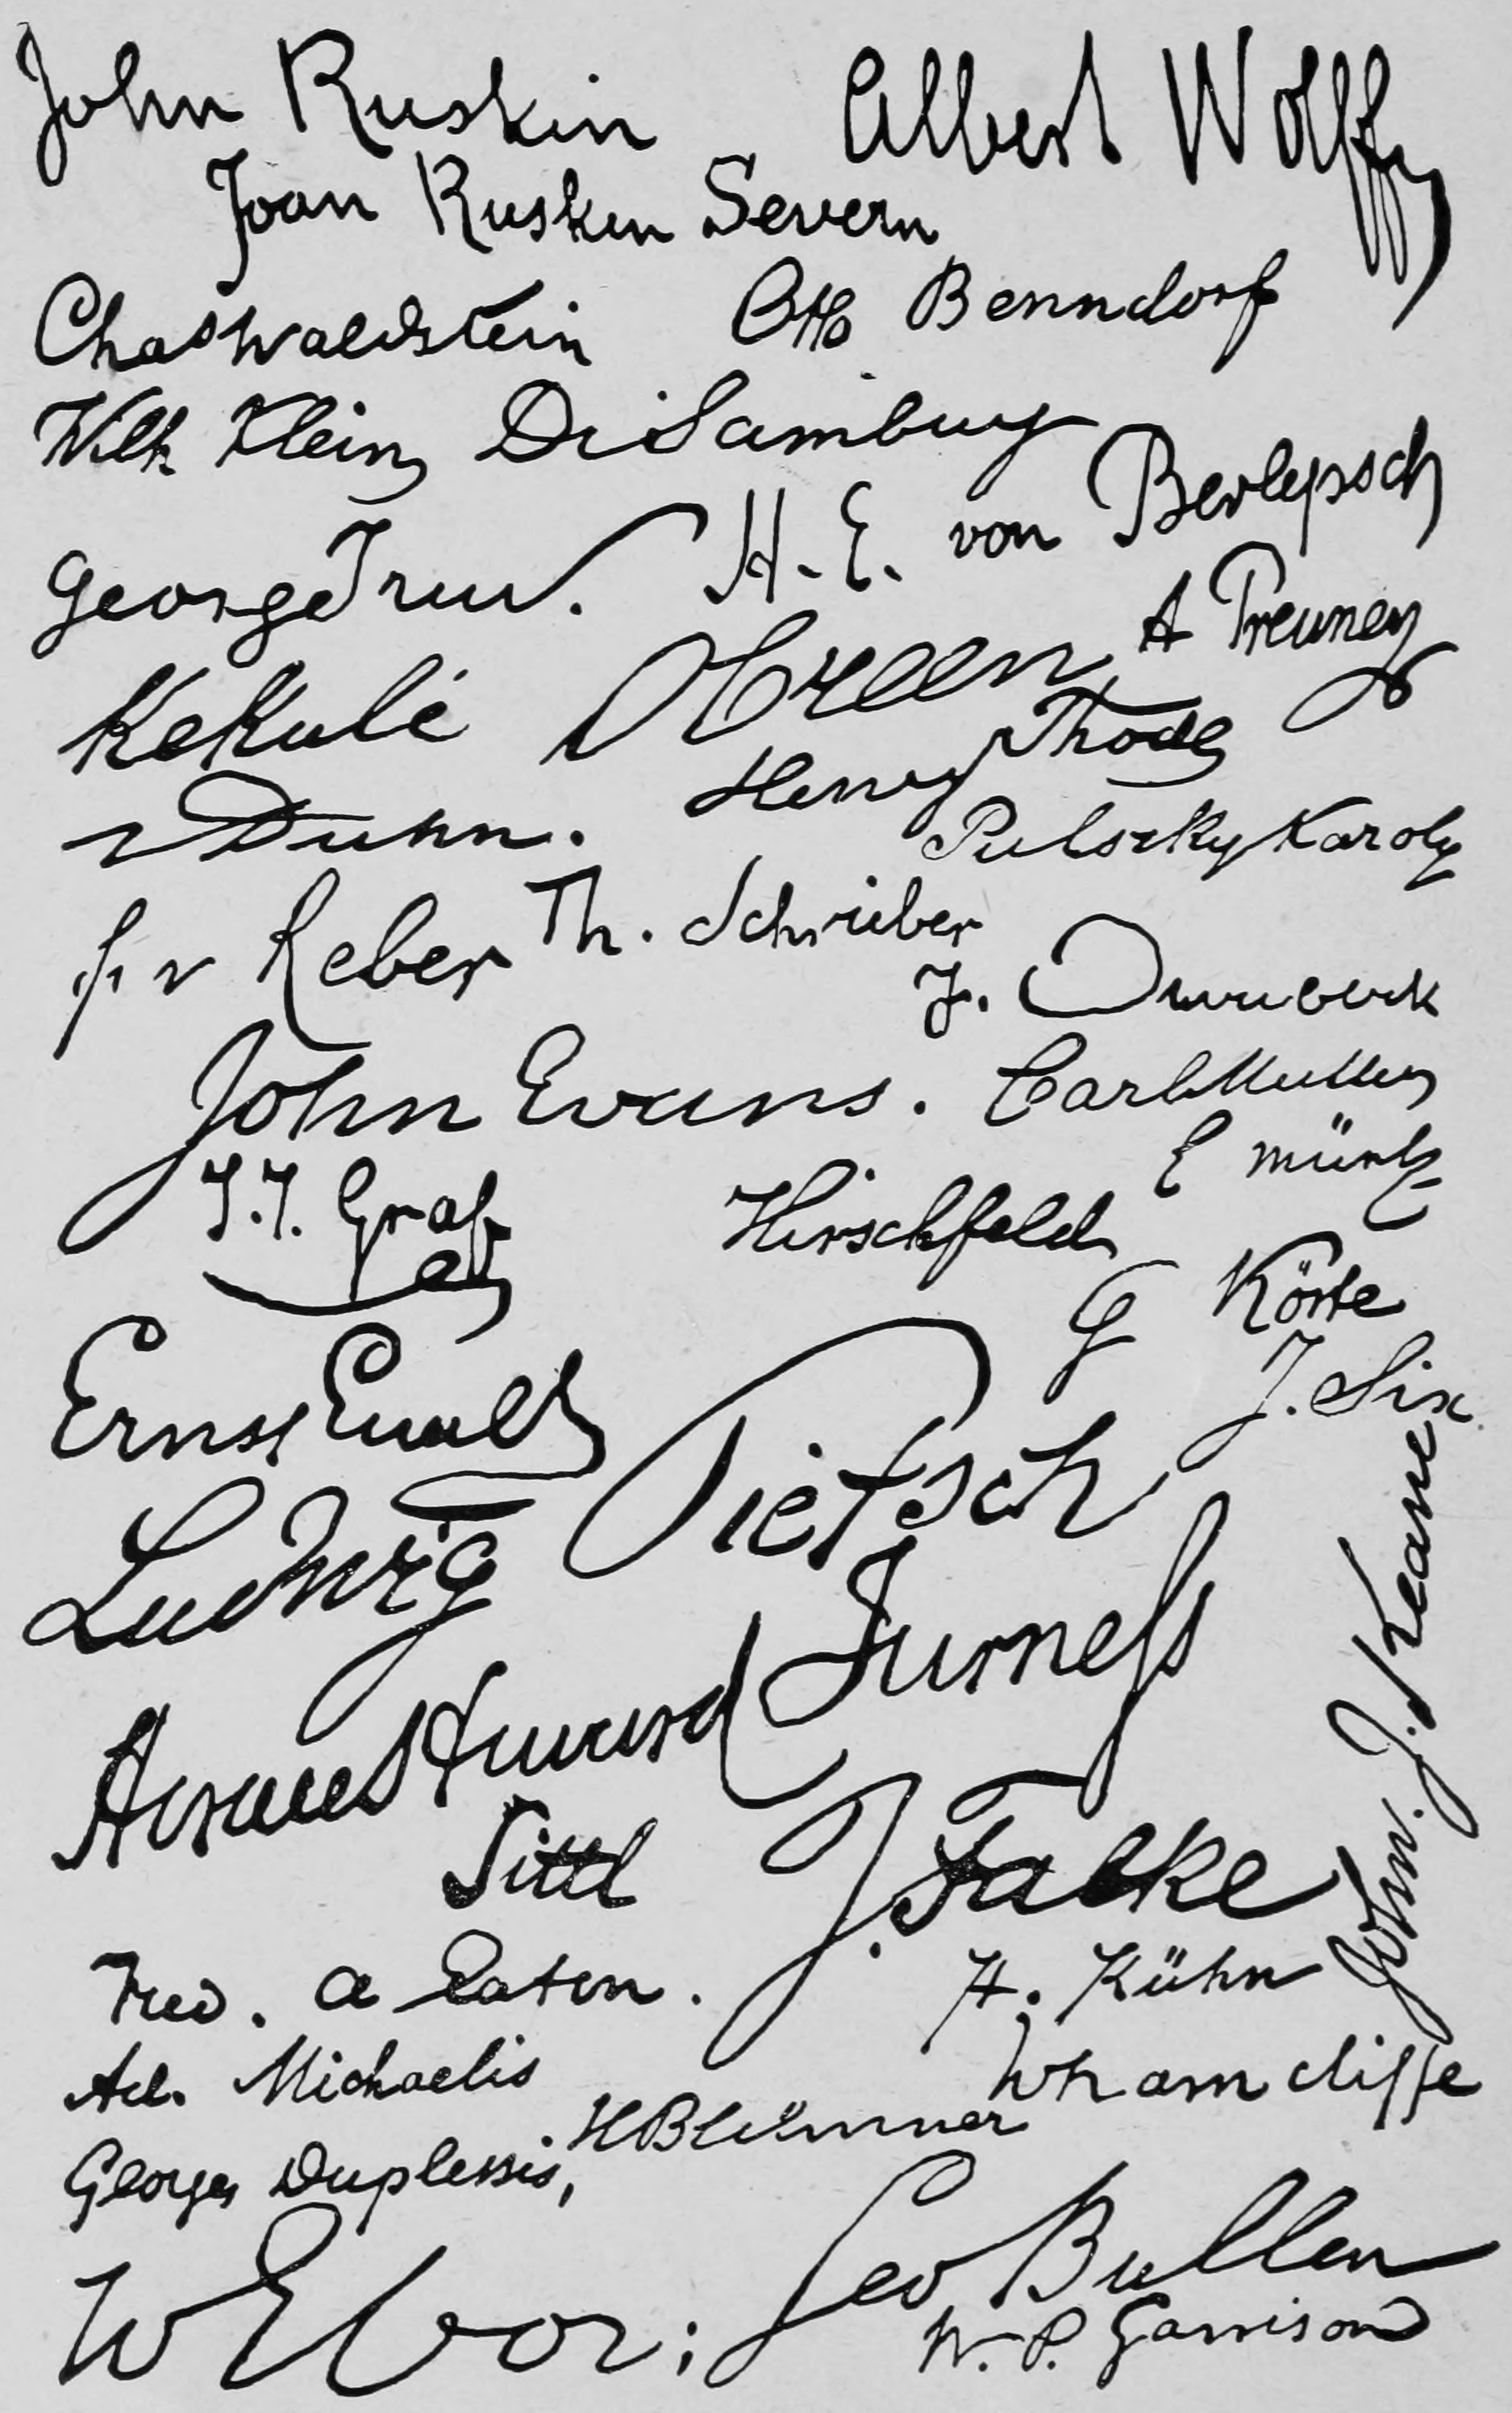 John Ruskin
Albert Wolff
Joan Ruskin Severn
Chas Waldstein
Otto Benndorf
Wilh Klein
H. E. von Berlepsch
George
A Preuner
Kekulé
Obreen
Henry Thode
v Duhn.
Pulszky Karoly
Fr v Reber
Th. Schreiber
J. Overbeck
John Evans.
Carl Muller
E Müntz
Hirschfeld
G Körte
J. Six
Ernst Ewald
Ludwig Pietsch
Horace Howard Furness
John. J. Keane
Sittl
J. Falke
Fred. A Eaton.
H. Kühn
Ad. Michaelis
Wharncliffe
H Blümner
Georges Duplessis,
Geo Bullen
W. P. Garrison